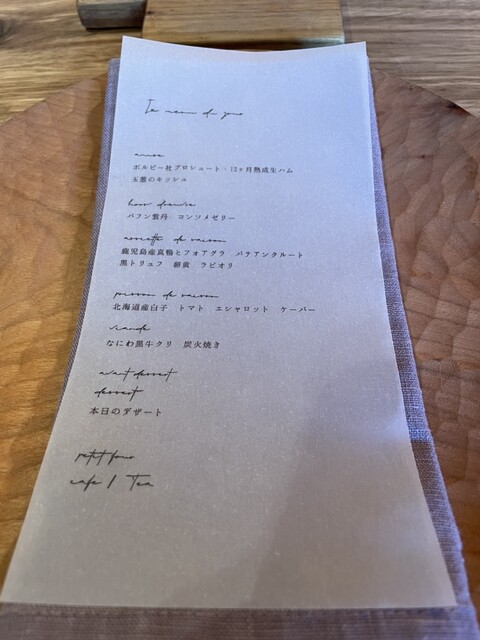 Le menu du jour
amuse
ボルピー社プロシュート・12ヶ月熟成生ハム
玉葱のキッシュ
hors d'œuvre
バフン雲丹 コンソメゼリー
assiette de saison
鹿児島産真鴨とフォアグラ パテアンクルート
黒トリュフ 卵黄 ラビオリ
poisson de saison
北海道産白子 トマト エシャロット ケーパー
viande
なにわ黒牛クリ 炭火焼き
avant dessert
dessert
本日のデザート
petit four
cafe / Tea